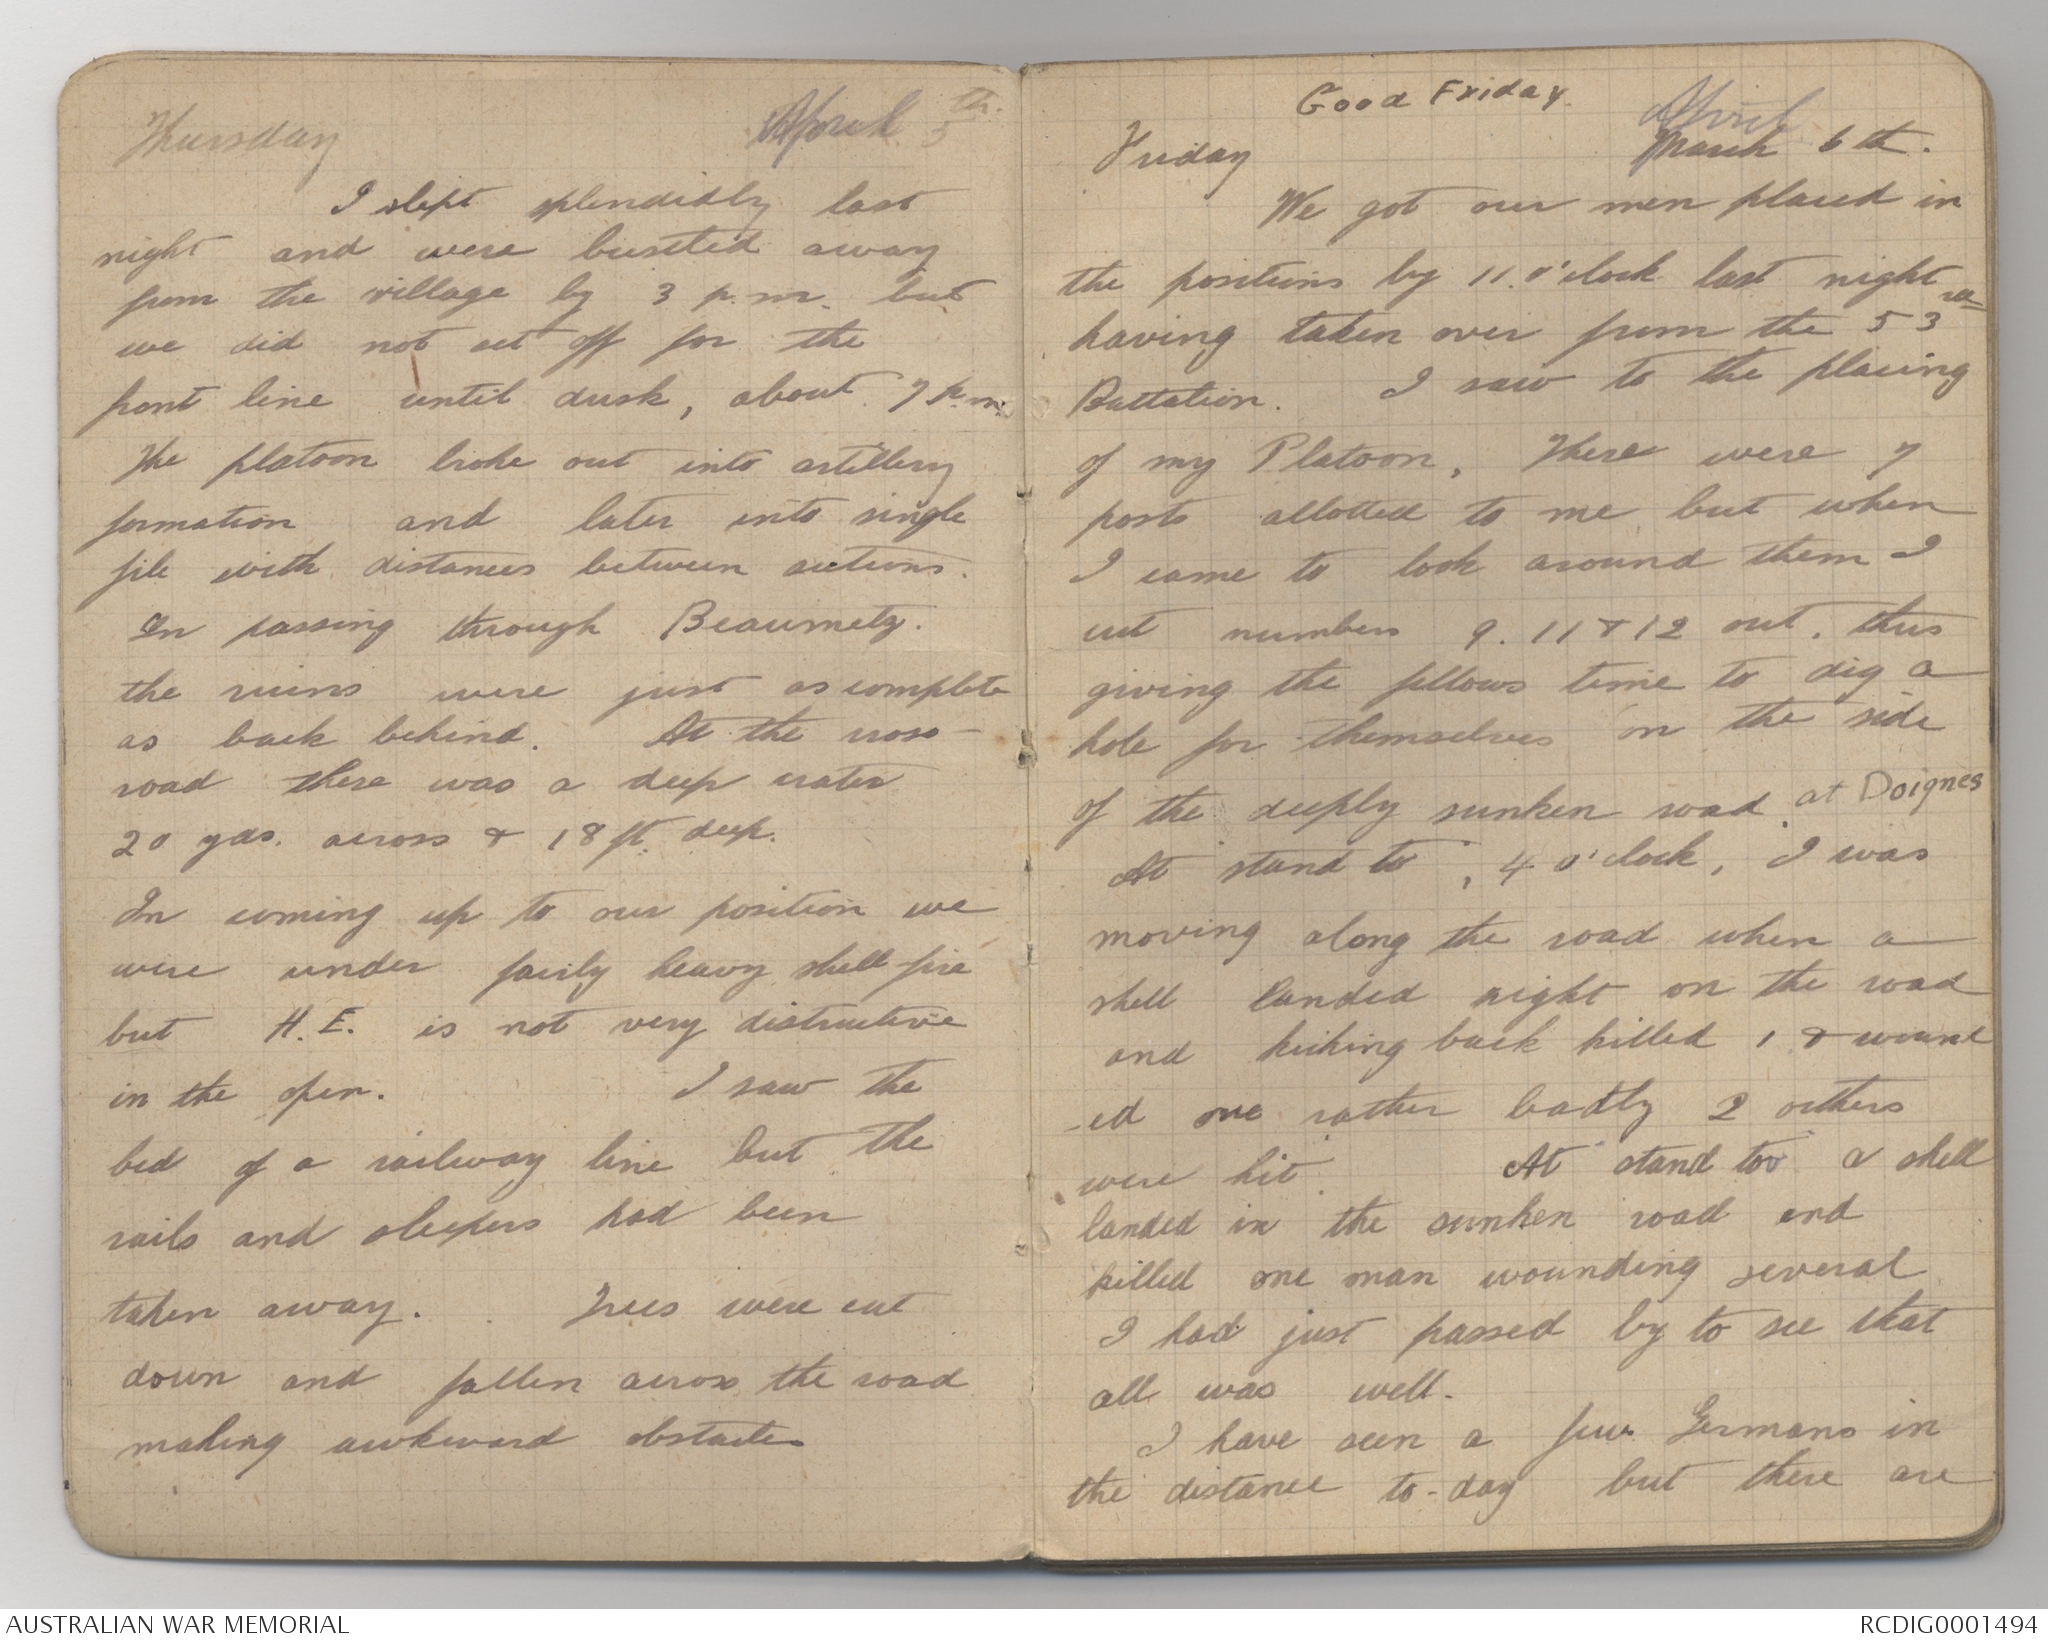 Thursday April 5th.
I slept splendidly last
night and were bustled away
from the village by 3 p.m. but
we did not set off for the
front line until dusk, about 7 p.m.
The platoon broke out into artillery
formation and later into single
file with distances between sections.
In passing through Beaumetz.
the ruins were just as complete
as back behind. At the cross-
road there was a deep crater
20 yds. across & 18 ft deep.
In coming up to our position we
were under fairly heavy shell fire
but H.E. is not very distructive
in the open. I saw the
bed of a railway line but the
rails and sleepers had been
taken away. Trees were cut
down and fallen across the road
making awkward obstacles
Good Friday.
Friday March April 6th.
We got our men placed in
the positions by 11.0'clock last night
having taken over from the 53rd
Battation. I saw to the placing
of my Platoon. There were 7
posts allotted to me but when
I came to look around them I
cut numbers 9. 11 & 12 out. thus
giving the fellows time to dig a
hole for themselves in the side
of the deeply sunken road at Doignes
At "stand to", 4 o'clock, I was
moving along the road when a
shell landed right on the road
and kicking back killed 1 & wound
-ed one rather badly 2 others
were hit. At "stand too" a shell
landed in the sunken road and
killed one man wounding several
I had just passed by to see that
all was well.
I have seen a few Germans in
the distance to-day but there are
AUSTRALIAN WAR MEMORIAL RCDIG0001494